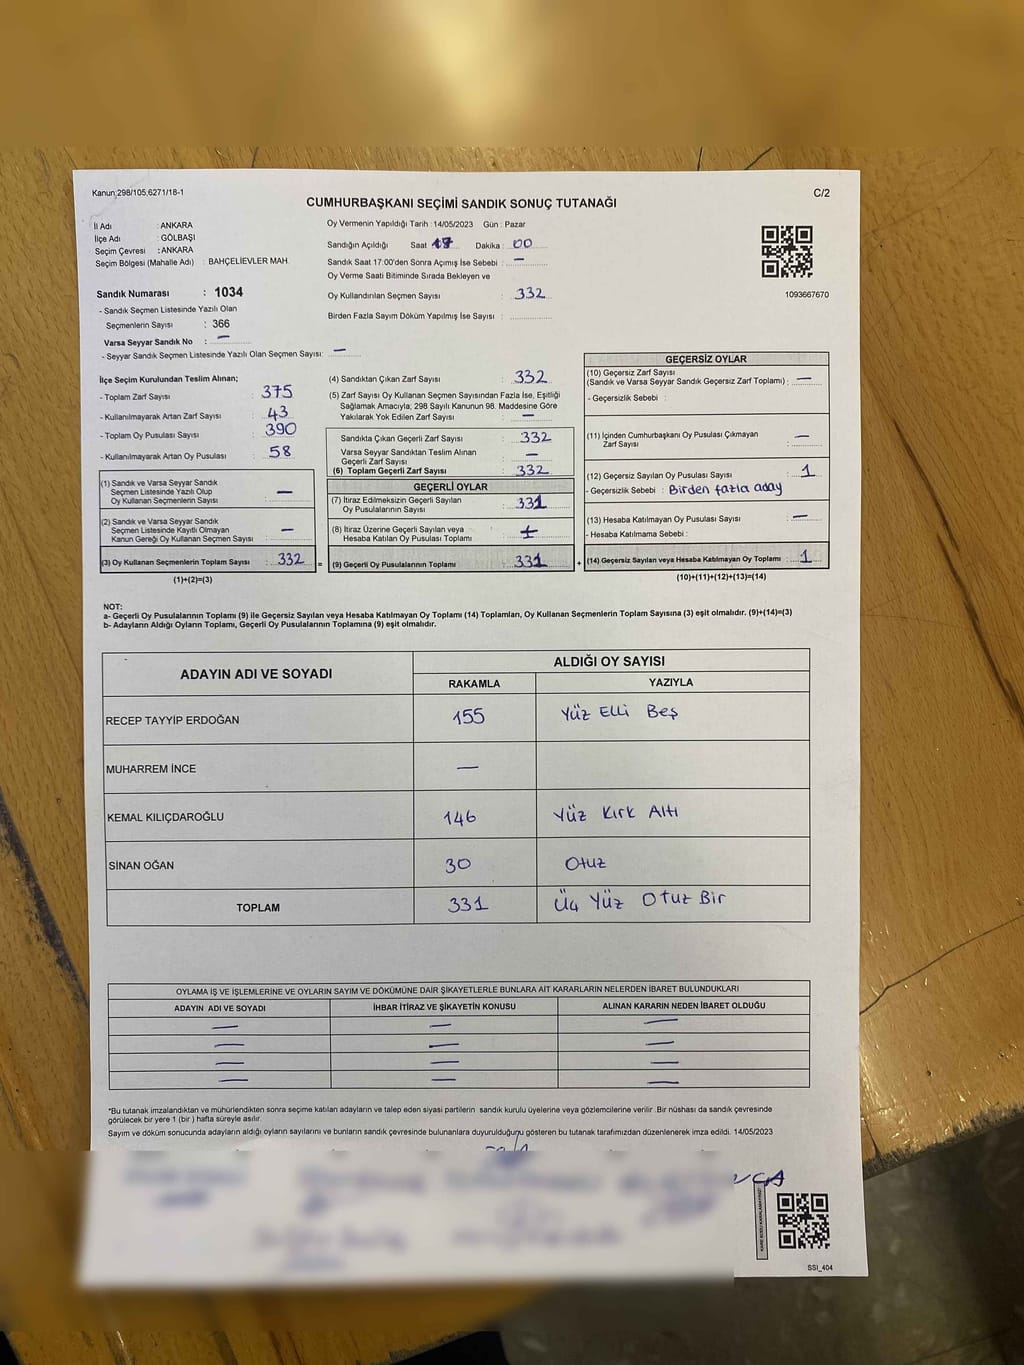 Kanun;298/105,6271/18-1
C/2
CUMHURBAŞKANI SEÇİMİ SANDIK SONUÇ TUTANAĞI
İl Adı : ANKARA
İlçe Adı : GÖLBAŞI
Seçim Çevresi : ANKARA
Seçim Bölgesi (Mahalle Adı) : BAHÇELİEVLER MAH.
Sandık Numarası : 1034
- Sandık Seçmen Listesinde Yazılı Olan
Seçmenlerin Sayısı : 366
Varsa Seyyar Sandık No : —
- Seyyar Sandık Seçmen Listesinde Yazılı Olan Seçmen Sayısı: —
Oy Vermenin Yapıldığı Tarih : 14/05/2023 Gün : Pazar
Sandığın Açıldığı Saat 17 Dakika : 00
Sandık Saat 17:00'den Sonra Açımış İse Sebebi : —
Oy Verme Saati Bitiminde Sırada Bekleyen ve
Oy Kullandırılan Seçmen Sayısı : 332
Birden Fazla Sayım Döküm Yapılmış İse Sayısı :
1093667670
İlçe Seçim Kurulundan Teslim Alınan;
- Toplam Zarf Sayısı : 375
- Kullanılmayarak Artan Zarf Sayısı : 43
- Toplam Oy Pusulası Sayısı : 390
- Kullanılmayarak Artan Oy Pusulası : 58
(1) Sandık ve Varsa Seyyar Sandık
Seçmen Listesinde Yazılı Olup
Oy Kullanan Seçmenlerin Sayısı : —
(2) Sandık ve Varsa Seyyar Sandık
Seçmen Listesinde Kayıtlı Olmayan
Kanun Gereği Oy Kullanan Seçmen Sayısı : —
(3) Oy Kullanan Seçmenlerin Toplam Sayısı : 332 =
(1)+(2)=(3)
(4) Sandıktan Çıkan Zarf Sayısı : 332
(5) Zarf Sayısı Oy Kullanan Seçmen Sayısından Fazla İse, Eşitliği
Sağlamak Amacıyla; 298 Sayılı Kanunun 98. Maddesine Göre
Yakılarak Yok Edilen Zarf Sayısı : —
Sandıkta Çıkan Geçerli Zarf Sayısı : 332
Varsa Seyyar Sandıktan Teslim Alınan
Geçerli Zarf Sayısı : —
(6) Toplam Geçerli Zarf Sayısı : 332
GEÇERLİ OYLAR
(7) İtiraz Edilmeksizin Geçerli Sayılan
Oy Pusulalarının Sayısı : 331
(8) İtiraz Üzerine Geçerli Sayılan veya
Hesaba Katılan Oy Pusulası Toplamı :
(9) Geçerli Oy Pusulalarının Toplamı : 331 +
GEÇERSİZ OYLAR
(10) Geçersiz Zarf Sayısı
(Sandık ve Varsa Seyyar Sandık Geçersiz Zarf Toplamı) : —
- Geçersizlik Sebebi :
(11) İçinden Cumhurbaşkanı Oy Pusulası Çıkmayan
Zarf Sayısı : —
(12) Geçersiz Sayılan Oy Pusulası Sayısı : 1
- Geçersizlik Sebebi : Birden fazla aday
(13) Hesaba Katılmayan Oy Pusulası Sayısı : —
- Hesaba Katılmama Sebebi :
(14) Geçersiz Sayılan veya Hesaba Katılmayan Oy Toplamı : 1
(10)+(11)+(12)+(13)=(14)
NOT:
a- Geçerli Oy Pusulalarının Toplamı (9) ile Geçersiz Sayılan veya Hesaba Katılmayan Oy Toplamı (14) Toplamları, Oy Kullanan Seçmenlerin Toplam Sayısına (3) eşit olmalıdır. (9)+(14)=(3)
b- Adayların Aldığı Oyların Toplamı, Geçerli Oy Pusulalarının Toplamına (9) eşit olmalıdır.
ADAYIN ADI VE SOYADI
ALDIĞI OY SAYISI
RAKAMLA YAZIYLA
RECEP TAYYİP ERDOĞAN 155 Yüz Elli Beş
MUHARREM İNCE —
KEMAL KILIÇDAROĞLU 146 Yüz Kırk Altı
SİNAN OĞAN 30 Otuz
TOPLAM 331 Üç Yüz Otuz Bir
OYLAMA İŞ VE İŞLEMLERİNE VE OYLARIN SAYIM VE DÖKÜMÜNE DAİR ŞİKAYETLERLE BUNLARA AİT KARARLARIN NELERDEN İBARET BULUNDUKLARI
ADAYIN ADI VE SOYADI İHBAR İTİRAZ VE ŞİKAYETİN KONUSU ALINAN KARARIN NEDEN İBARET OLDUĞU
— — —
— — —
— — —
— — —
*Bu tutanak imzalandıktan ve mühürlendikten sonra seçime katılan adayların ve talep eden siyasi partilerin sandık kurulu üyelerine veya gözlemcilerine verilir. Bir nüshası da sandık çevresinde
görülecek bir yere 1 (bir ) hafta süreyle asılır.
Sayım ve döküm sonucunda adayların aldığı oyların sayılarını ve bunların sandık çevresinde bulunanlara duyurulduğunu gösteren bu tutanak tarafımızdan düzenlenerek imza edildi. 14/05/2023
SSI_404